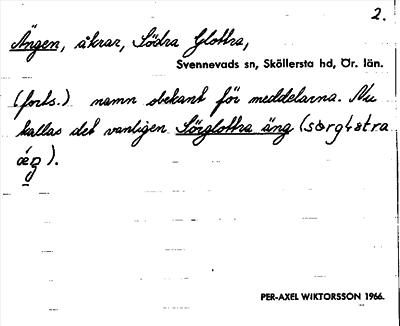 2.
Ängen, åkrar, Södra Glottra,
Svennevads sn, Sköllersta hd, Ör. län.
(forts.) namn obekant för meddelarna. Nu
kallas det vanligen Sörglottra äng (
).
PER-AXEL WIKTORSSON 1966.